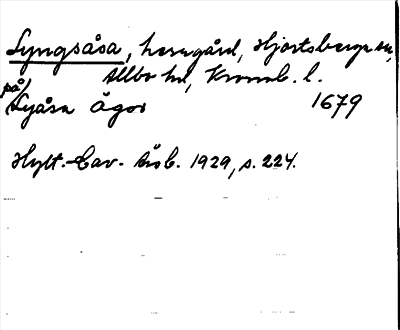 Lyngsåsa, herrgård, Hjortsberga sn,
Allbo hd, Kronob. l.
på)
Lyåsa Ägor 1679
Hylt.-Cav. Års b. 1929, s. 224.